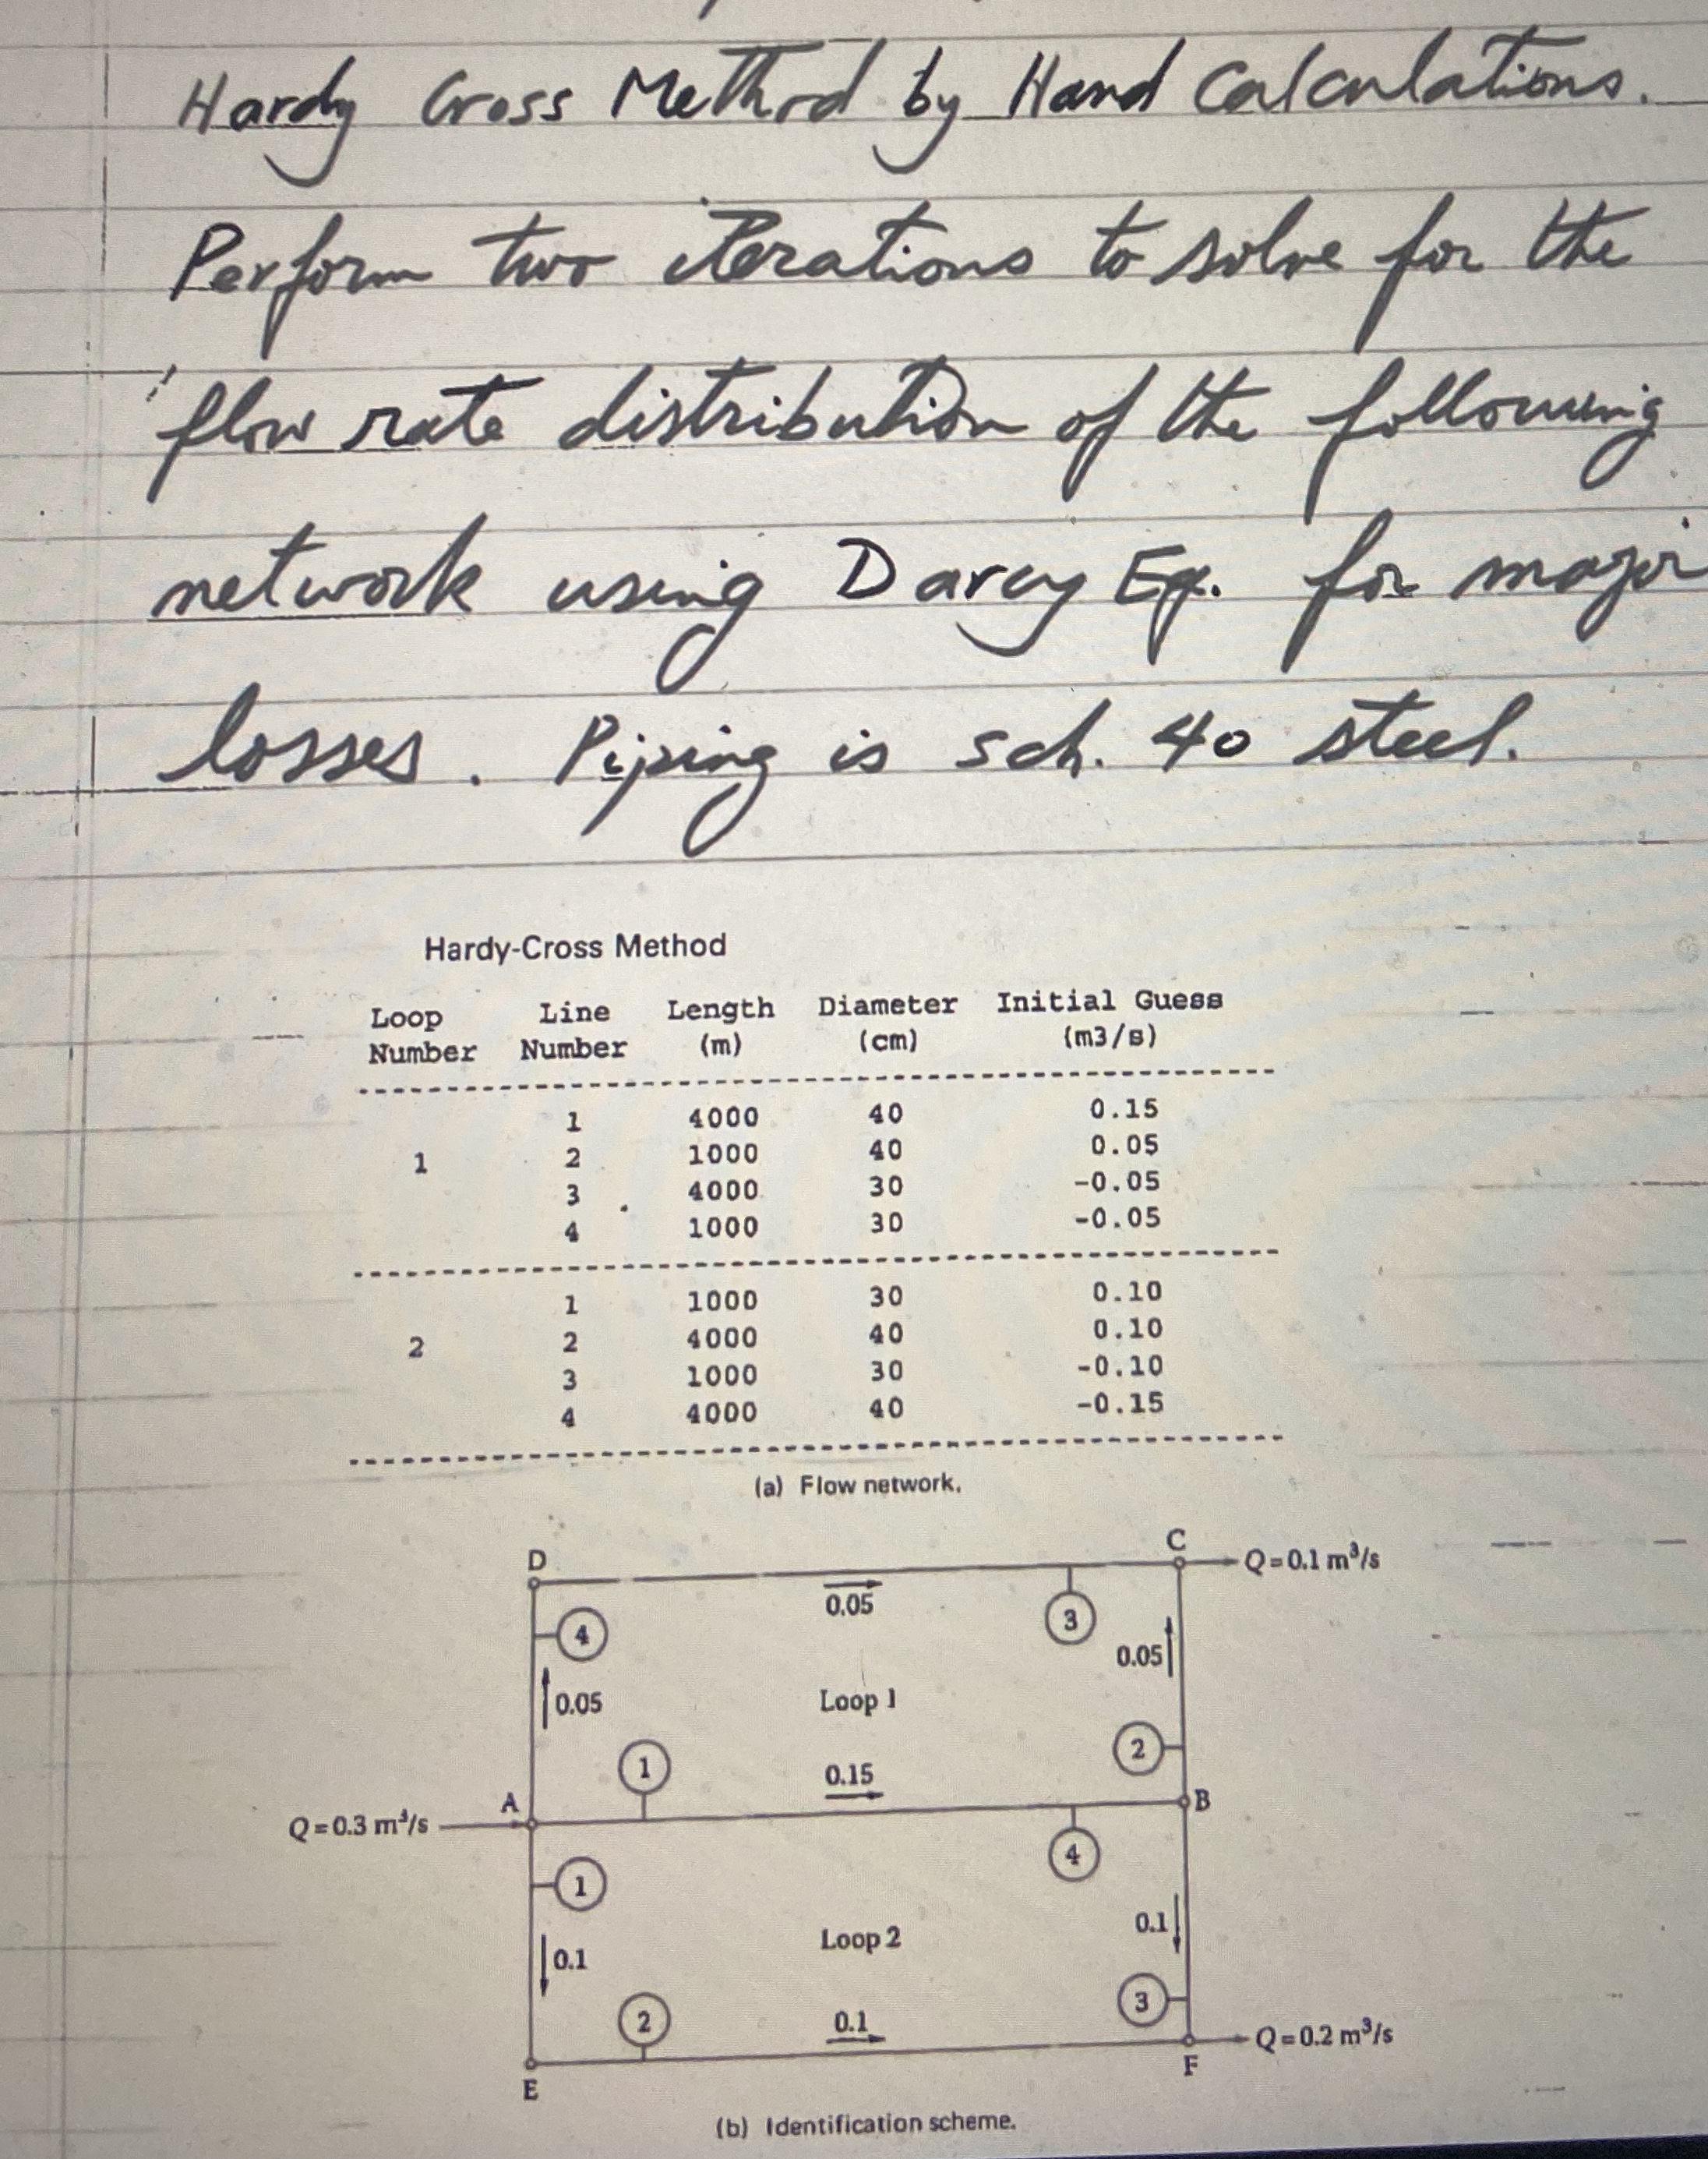 Hardy Cross Method by Hand Calculations.
Perform two iterations to solve for the
flow rate distribution of the following
network using Darcy Eq. for major
losses. Piping is sch. 40 steel.
Hardy-Cross Method
Loop Line Length Diameter Initial Guess
Number Number (m) (cm) (m3/s)
1 4000 40 0.15
1 2 1000 40 0.05
3 4000 30 -0.05
4 1000 30 -0.05
1 1000 30 0.10
2 2 4000 40 0.10
3 1000 30 -0.10
4 4000 40 -0.15
(a) Flow network.
D C Q=0.1 m³/s
0.05 3
4
0.05
0.05 Loop 1
2
1 0.15
A B
Q=0.3 m³/s
4
1
0.1
0.1 Loop 2
3
2 0.1
Q=0.2 m³/s
E F
(b) Identification scheme.